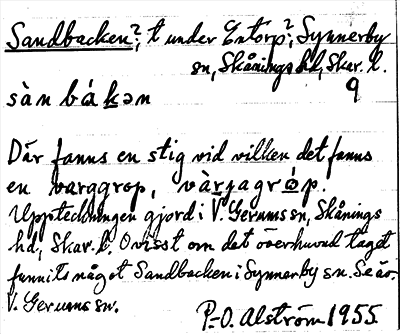 Sandbacken?, t under Entorp?, Synnerby
sn, Skånings hd, Skar. l.
sàn bákən 9
Där fanns en stig vid vilken det fanns
en varggrop, vàrjagróp.
Uppteckningen gjord i V. Gerums sn, Skånings
hd, Skar. l. Ovisst om det överhuvud taget
funnits något Sandbacken i Synnerby sn. Se äv.
V. Gerums sn.
P.-O. Alström 1955.